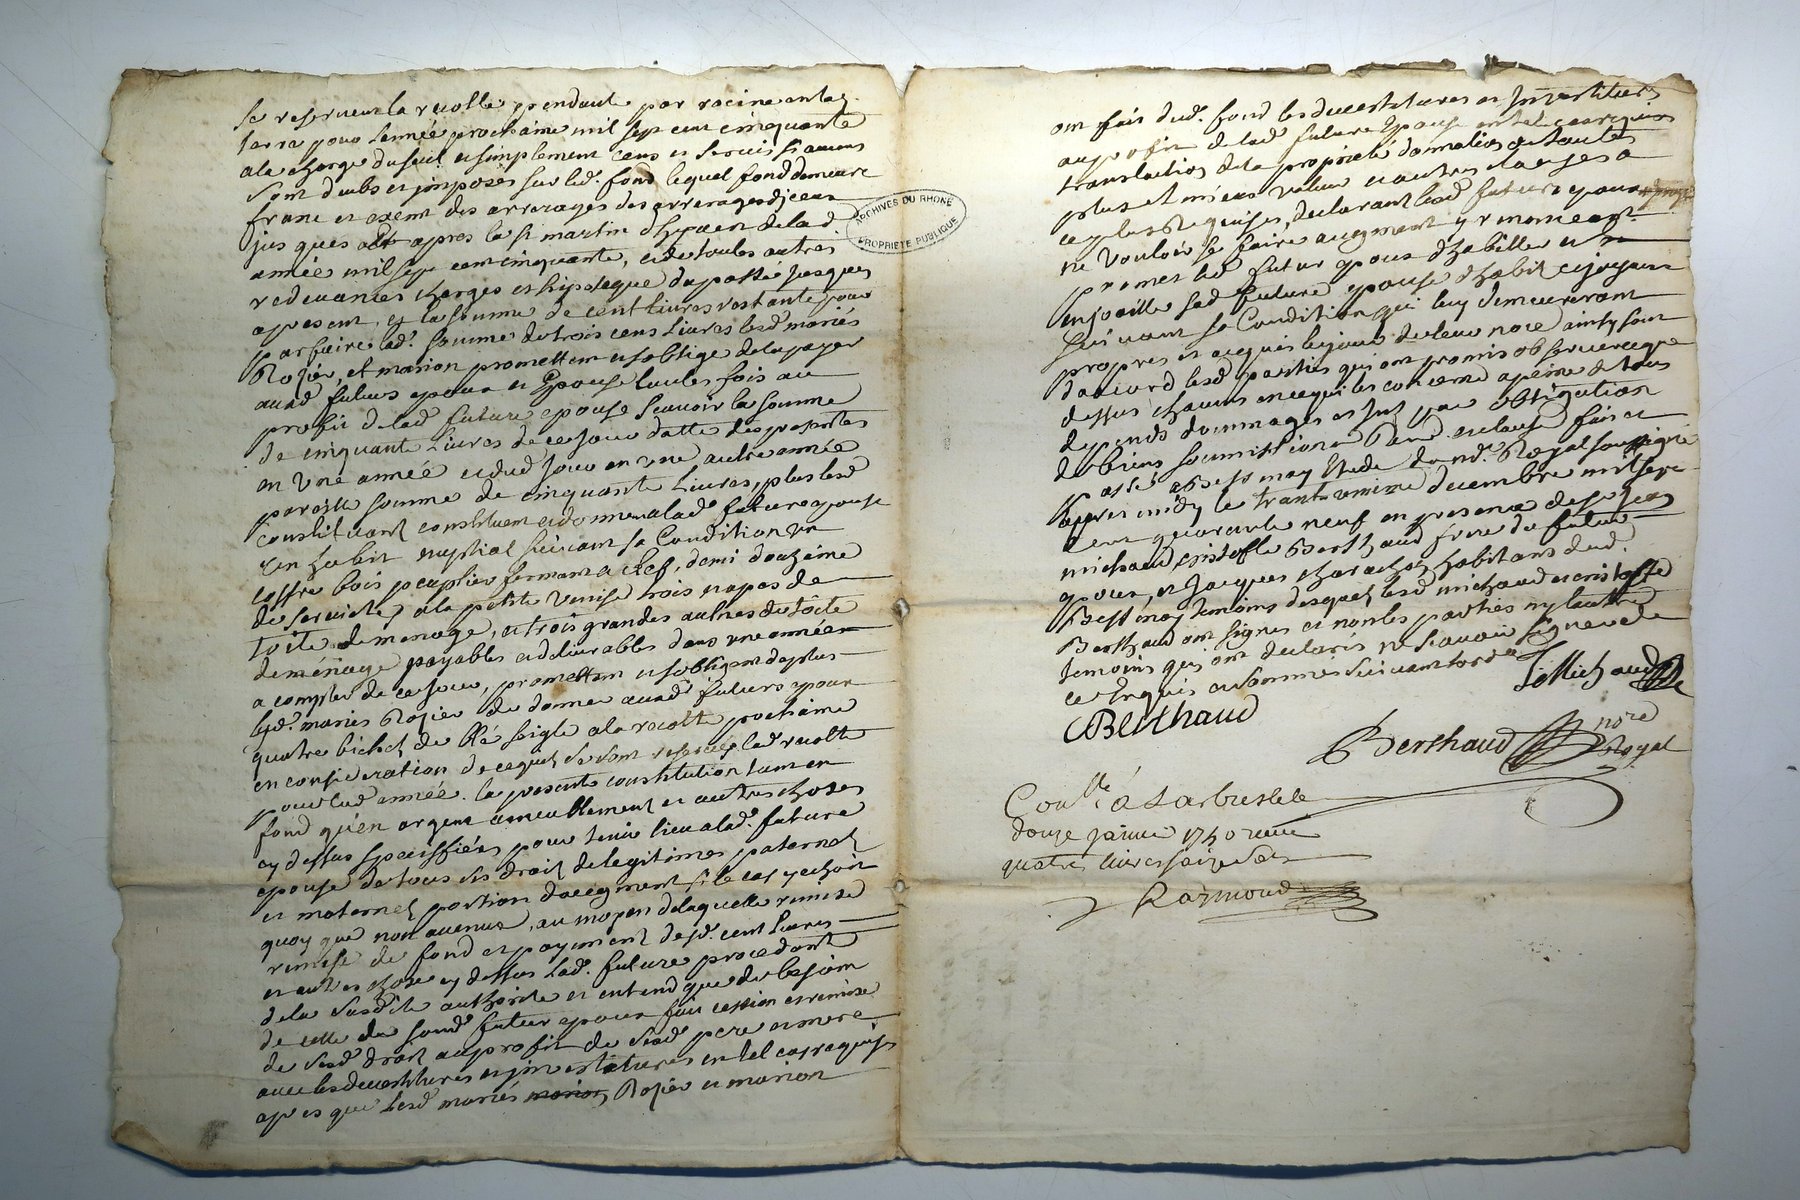 se reservent la recolte pendante par racine en lad.
terre pour l'année prochaine mil sept cent cinquante
a la charge du seul et simplement cens et servis si aucuns
sont deubs et imposés sur led. fond lequel fond demeure
franc et exent des arrerages des arrerages diceux
jusques apres la st martin d'hyver de lad.
année mil sept cent cinquante, et de toutes autres
redevances charges et hipoteque du passé jusques
apresent, et la somme de cent livres restante pour
parfaire lad. somme de trois cens livres lesd mariés
Rozier, et marion promettent et soblige de la payer
auxd futurs epoux et Epouse toutes fois au
profit de lad future epouse scavoir la somme
de cinquant livres de ce jour datte des presentes
en une année et dud jour en une autre année
pareille somme de cinquante livres, plus lesd
constituant constituent et donnent a lad future epouse
un habit nuptial suivant sa Condition un
coffre bois peuplier fermant a clef, demi douzaine
de serviete a la petite venise trois napes de
toile de menage, et trois grandes autres de toile
de ménage payables et delivrables dans une année
a compter de ce jour, promettent et sobligent de plus
lesd. mariés Rozier de donner auxd futurs epoux
quatre bichet de blé seigle a la recolte prochaine
en consideration de ce quils se sont reservé lad recolte
pour lad année. la presente constitution tant en
fond qu'en argent ameublement et autres choses
cy dessus speciffiées pour tenir lieu a lad. future
epouse de tous ses droits de legitimes paternel
et maternel portion daugment si le cas y echoit
quoy que non avenus, au moyen de laquelle remise
remise de fond et payement desd. cent livres
et autres chose cy dessus lad. future procedant
de la susdite authorité et entend que de besoin
de celle de sond. futur epoux fait cession et remise
de sesd droit au profit de sesd pere et mere
avec les devestitures et investitures en tel cas requises
apres que lesd mariés marion Rozier et marion
ont fait dud. fond les devestitures et Investitures
au profit de lad future Epouse en tel cas requises
translation de la proprieté donnation de toutes
plus et mieux value et autres clauses a
ce plus requises, declarant lesd futurs epoux
ne vouloir se faire augment y renonceant
promet led futur epoux d'habiller et
enjoailler sad future epouse d'habit et joyaux
suivant sa Condition qui luy demeureront
propres et acquis le jour de leur noce ainsy sont
daccord lesd parties qui ont promis observer ce que
dessus chacuns en ce qui les concerne a peine de tous
depends dommages et par obligation
de biens soumissions et clauses fait et
passé a Bessenay Etude du no. Royal soussigné
apres midy le trante unieme decembre mil sept
cent quarante neuf en presence de sr jean
michaud cristofle Berthaud frere du futur
epoux, et Jacques habitans dud.
Bessenay temoins desquels lesd michaud et cristofle
Berthaud ont signés et non les parties ny lautre
temoins qui ont declarés ne scavoir signer de
ce Enquis et sommés suivant lordce
J Michaud
C Berthaud
Berthaud nore
Royal
Conllé à Larbresle le
douze janvier 1750 receu
quatre livres seize sols
Raymond
ARCHIVES DU RHONE
PROPRIETE PUBLIQUE